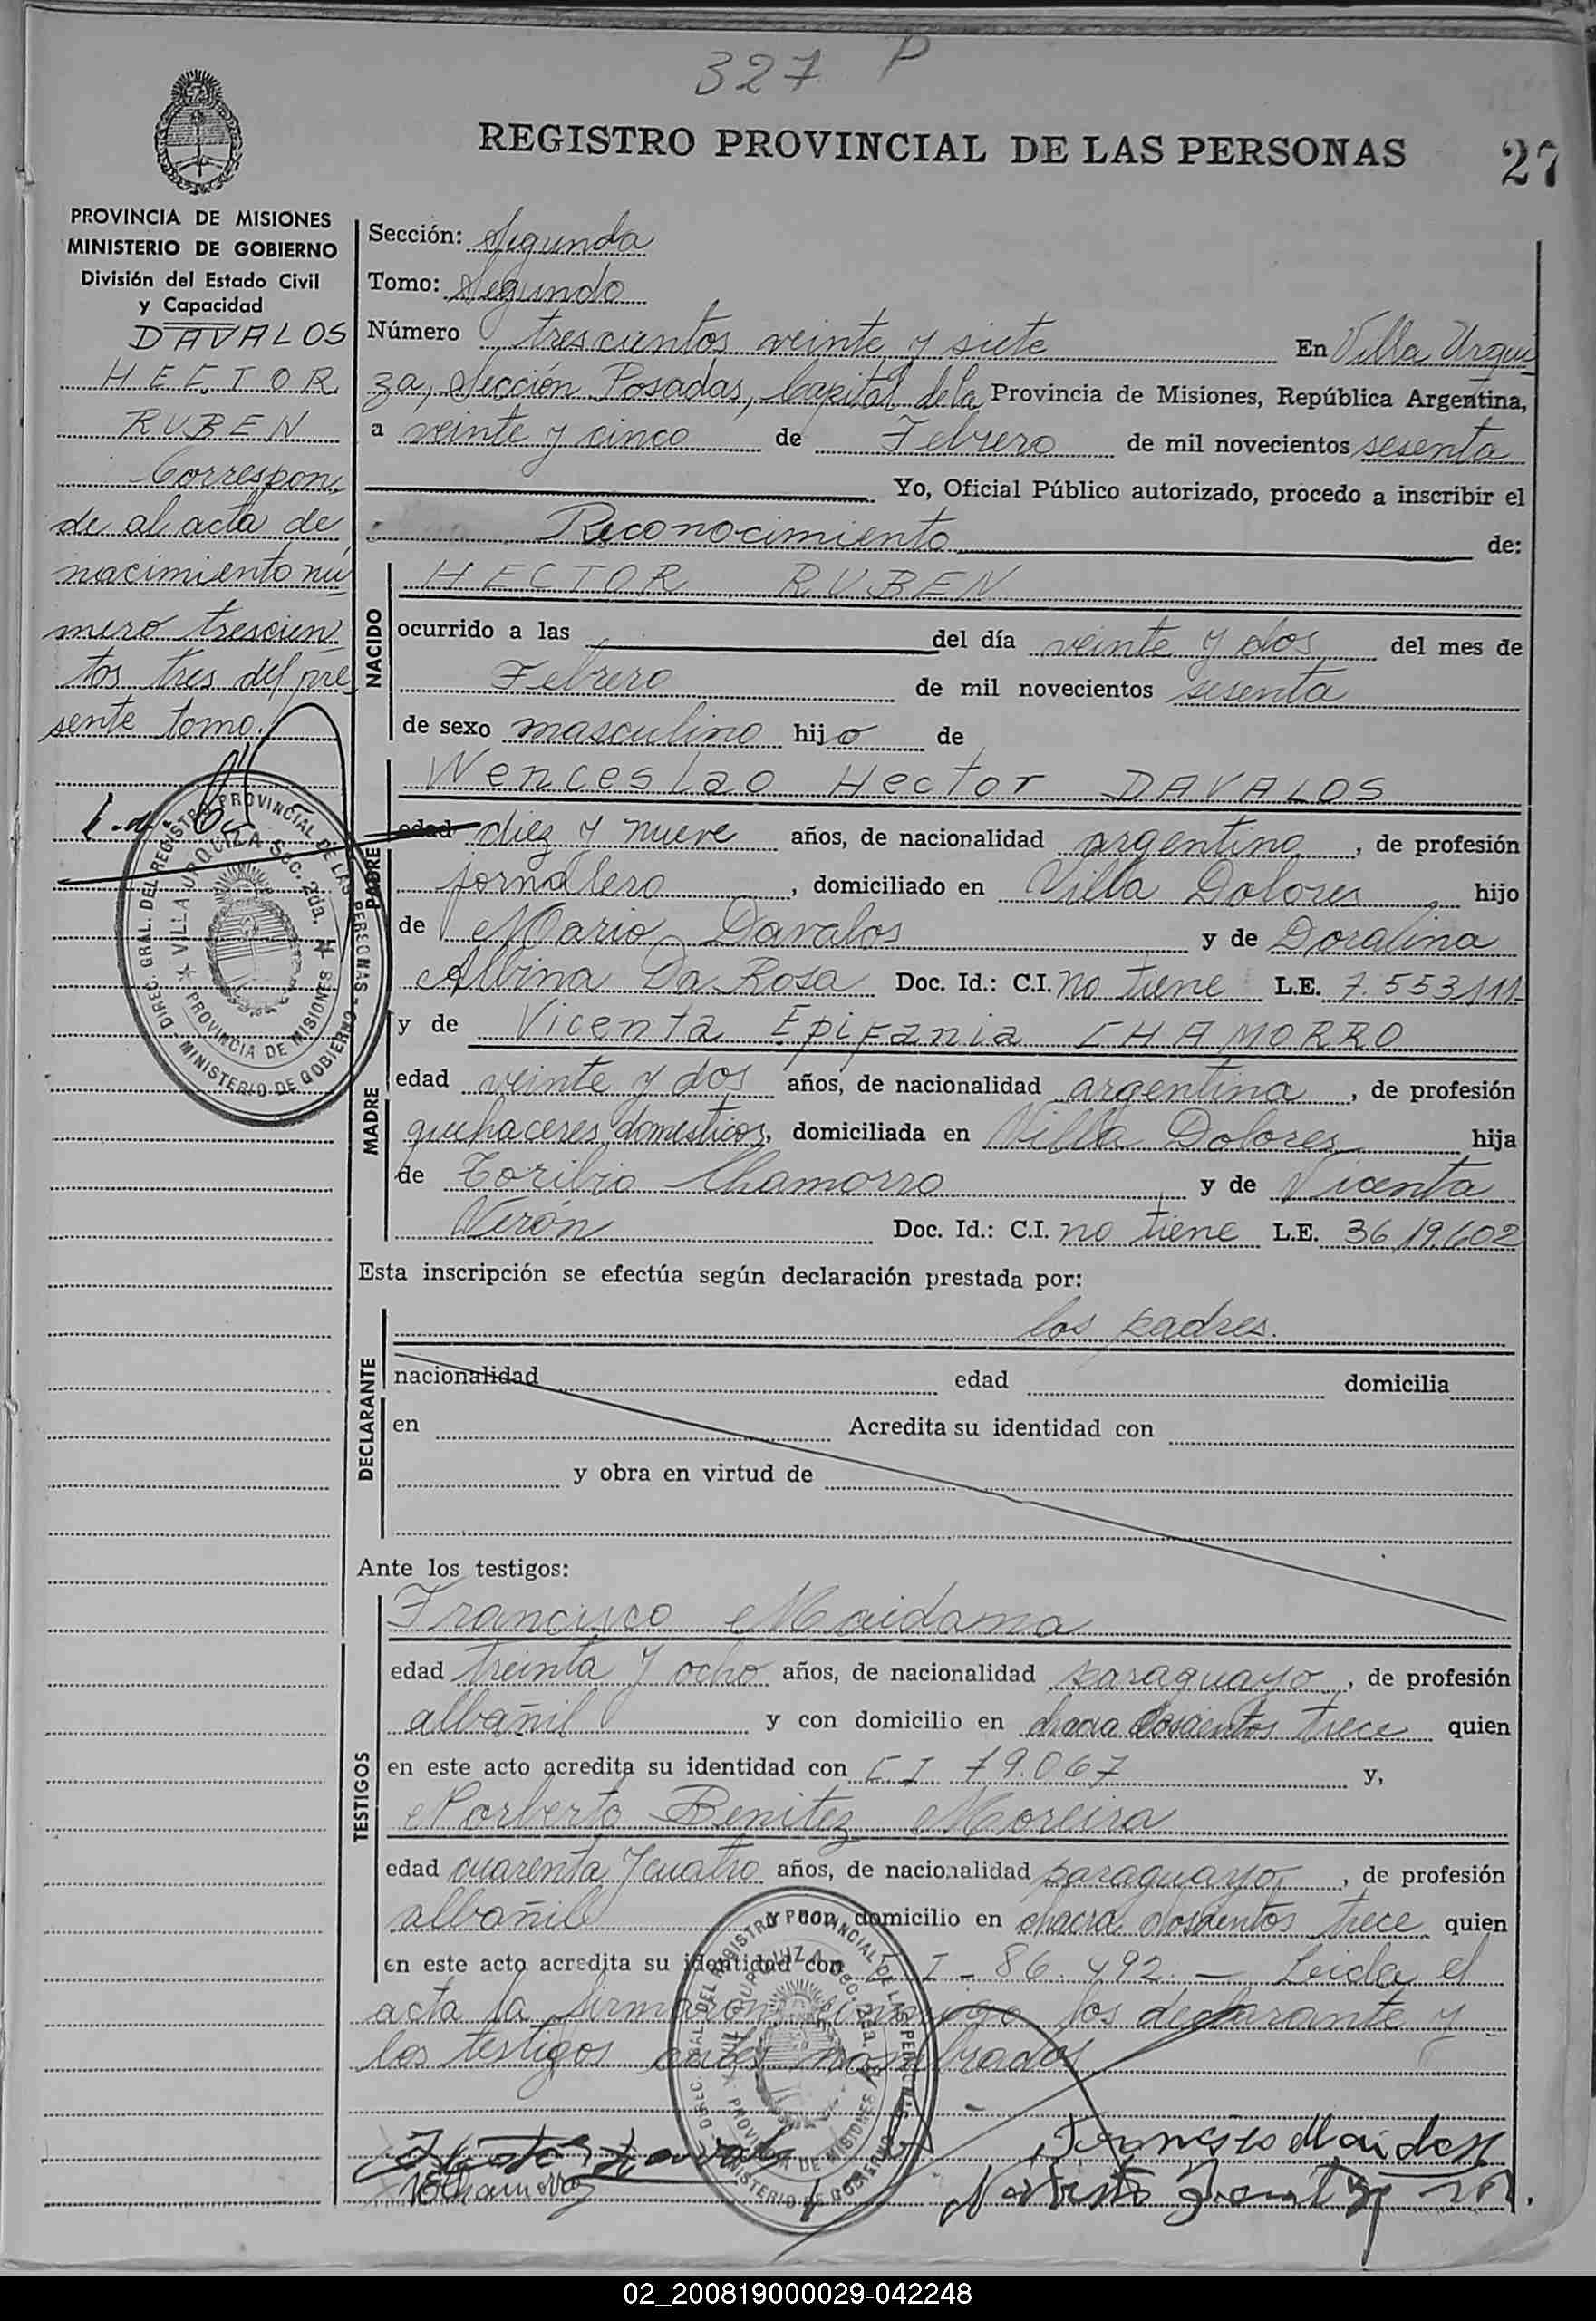 327 P
REGISTRO PROVINCIAL DE LAS PERSONAS
27
PROVINCIA DE MISIONES
MINISTERIO DE GOBIERNO
División del Estado Civil
y Capacidad
DAVALOS
HECTOR
RUBEN
Correspon
de al acta de
nacimiento nú
mero trescien
tos tres del pre
sente tomo.
DIREC. GRAL. DEL REGISTRO PROVINCIAL DE LAS PERSONAS - MINISTERIO DE GOBIERNO -
VILLA URQUIZA Sec. 2da. PROVINCIA DE MISIONES
Sección: Segunda
Tomo: Segundo
Número trescientos veinte y siete En Villa Urqui
za, Sección Posadas, Capital de la Provincia de Misiones, República Argentina,
a veinte y cinco de Febrero de mil novecientos sesenta
Yo, Oficial Público autorizado, procedo a inscribir el
Reconocimiento de:
NACIDO
HECTOR RUBEN
ocurrido a las del día veinte y dos del mes de
Febrero de mil novecientos sesenta
de sexo masculino hijo de
PADRE
Wenceslao Hector DAVALOS
edad diez y nueve años, de nacionalidad argentino, de profesión
jornalero, domiciliado en Villa Dolores hijo
de Mario Davalos y de Doralina
Albina Da Rosa Doc. Id.: C.I. no tiene L.E. 7.553111
MADRE
y de Vicenta Epifania CHAMORRO
edad veinte y dos años, de nacionalidad argentina, de profesión
quehaceres domesticos, domiciliada en Villa Dolores hija
de Toribio Chamorro y de Vicenta
Verón Doc. Id.: C.I. no tiene L.E. 3619.602
Esta inscripción se efectúa según declaración prestada por:
DECLARANTE
los padres.
nacionalidad edad domicilia
en Acredita su identidad con
y obra en virtud de
Ante los testigos:
TESTIGOS
Francisco Maidana
edad treinta y ocho años, de nacionalidad paraguayo, de profesión
albañil y con domicilio en chacra doscientos trece quien
en este acto acredita su identidad con C.I. 79.067 y,
Norberto Benitez Moreira
edad cuarenta y cuatro años, de nacionalidad paraguayo, de profesión
albañil y con domicilio en chacra doscientos trece quien
en este acto acredita su identidad con C I - 86.492. - Leida el
acta la firmaron conmigo los declarante y
los testigos antes nombrados
DIREC. GRAL. DEL REGISTRO PROVINCIAL DE LAS PERSONAS - MINISTERIO DE GOBIERNO -
VILLA URQUIZA Sec. 2da. PROVINCIA DE MISIONES
VEChamorro
Francisco Maidana
02_200819000029-042248